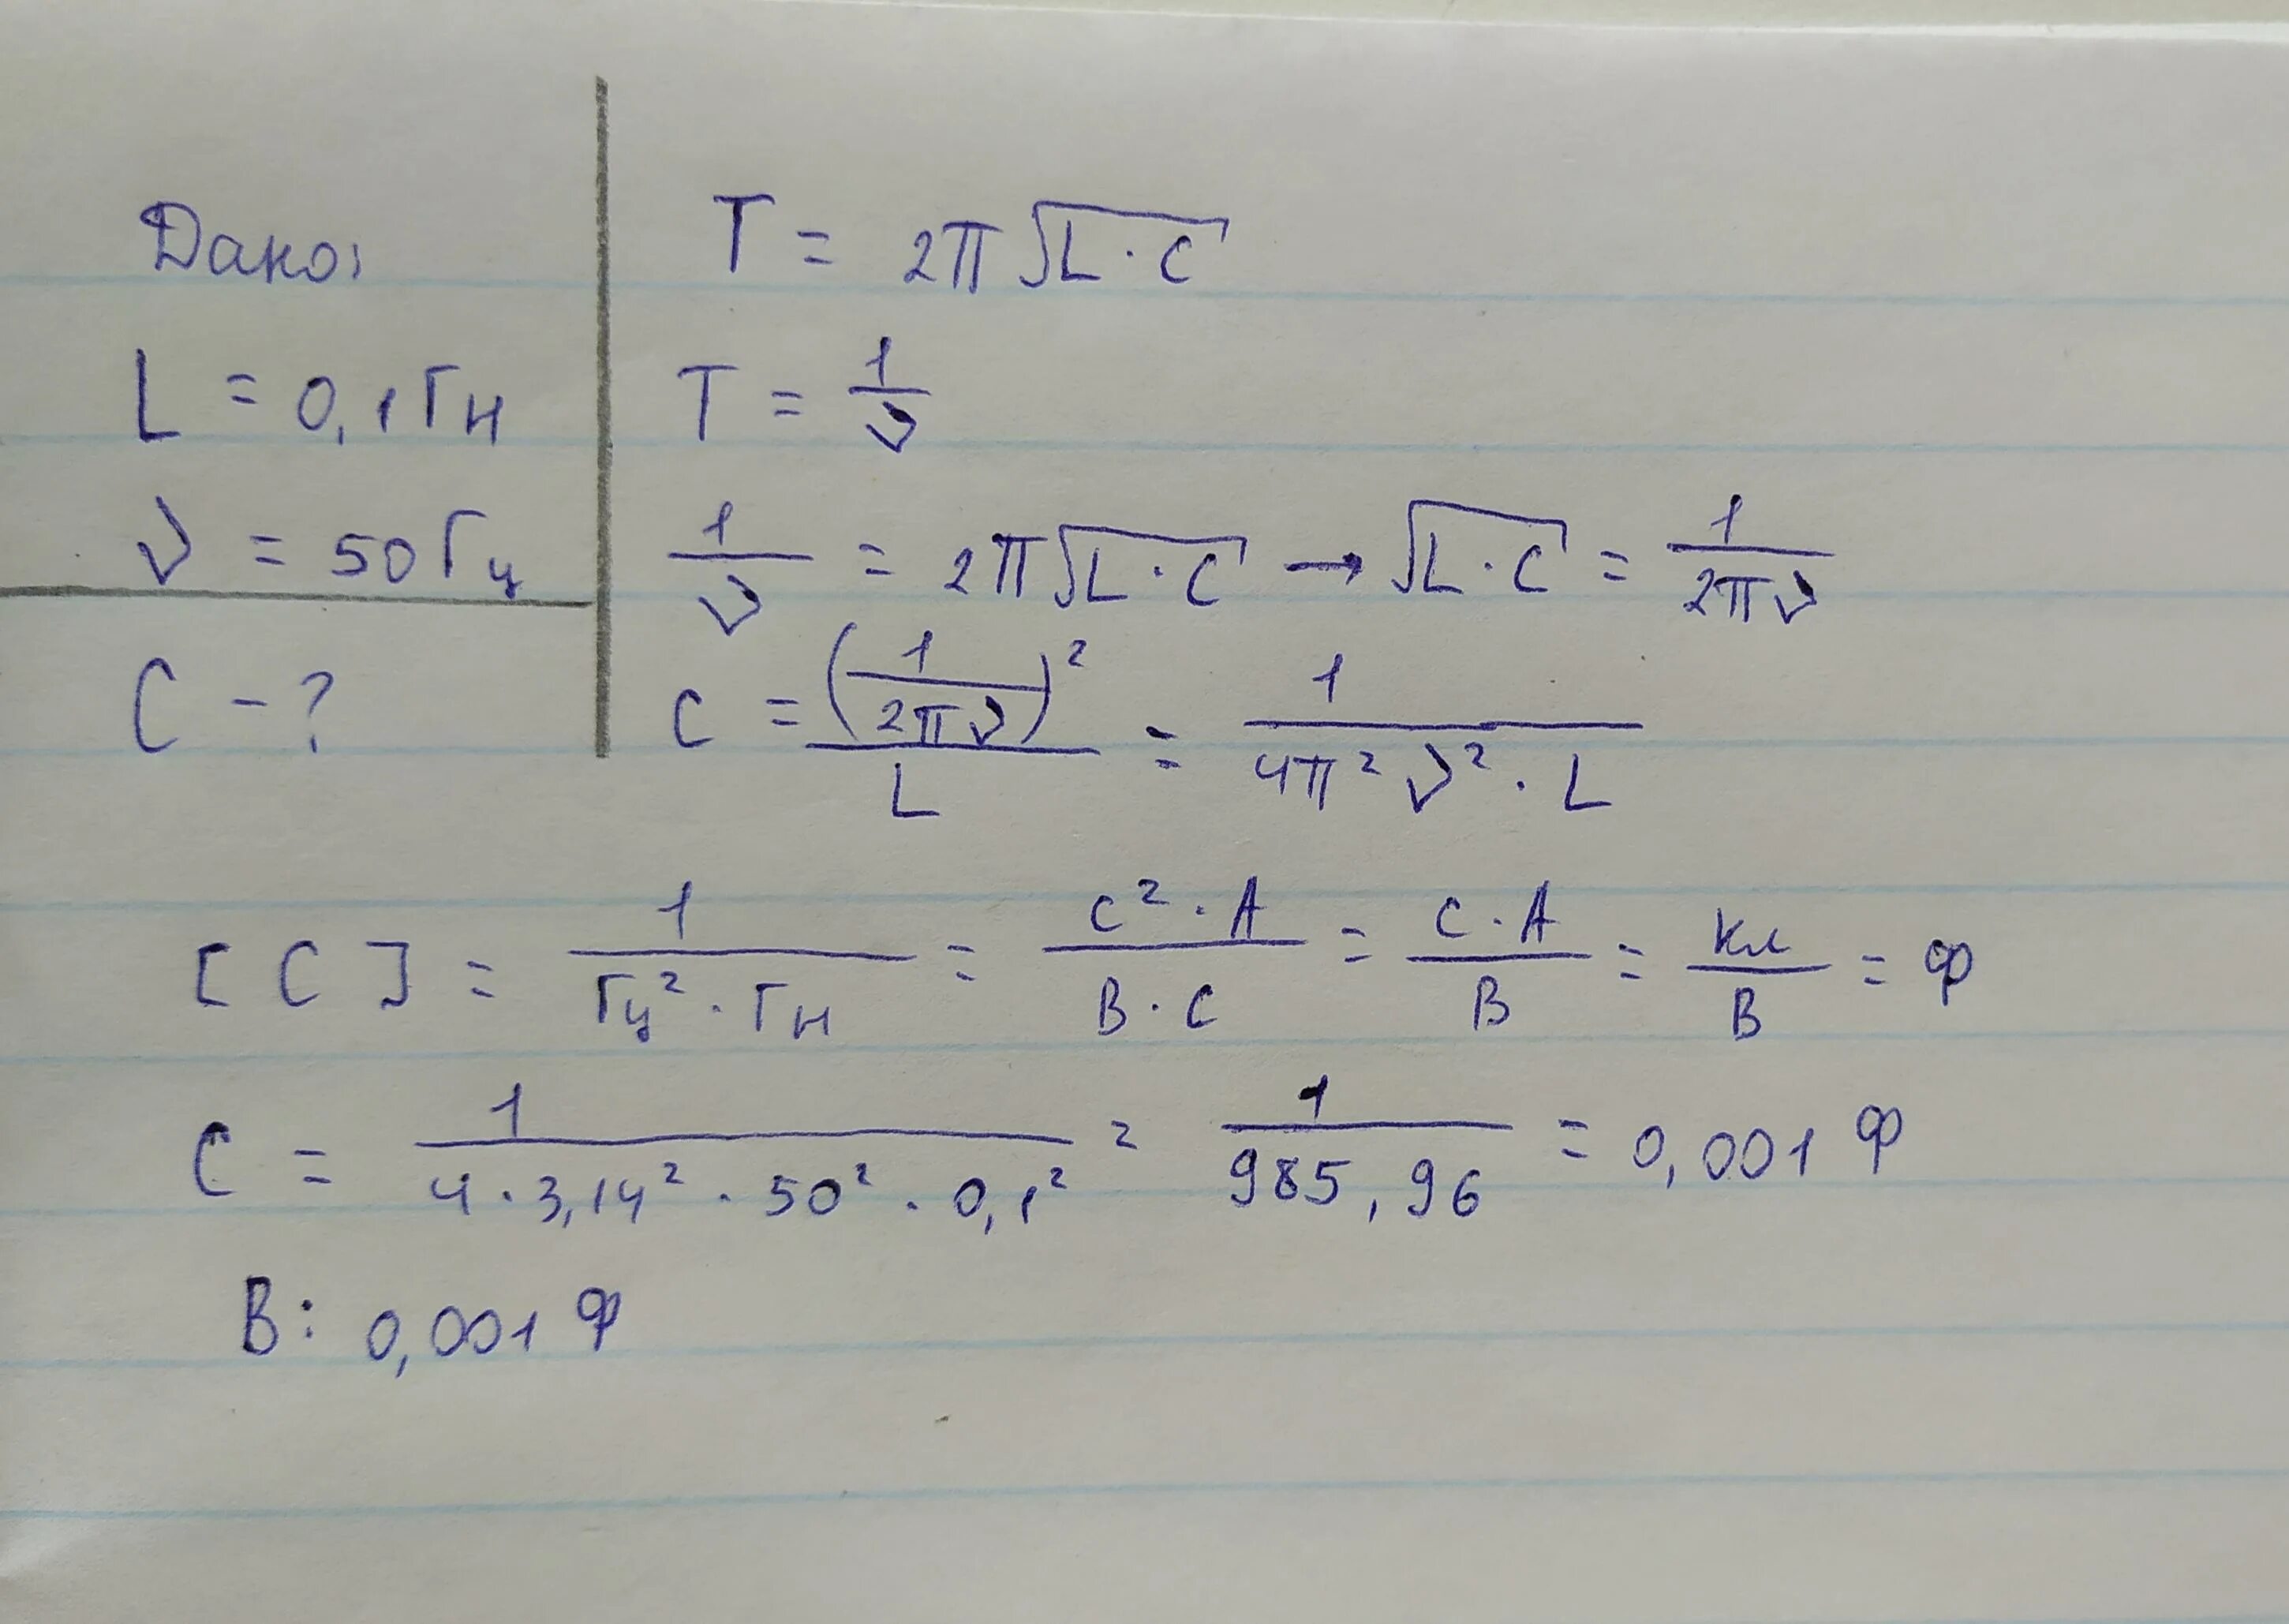 Дано:
L = 0,1 Гн
ν = 50 Гц
C - ?
T = 2π√(L · C)
T = 1/ν
1/ν = 2π√(L · C) → √(L · C) = 1/(2πν)
C = (1/(2πν))²/L = 1/(4π²ν² · L)
[C] = 1/(Гц² · Гн) = (с² · А)/(В · с) = (с · А)/В = Кл/В = Ф
C = 1/(4 · 3,14² · 50² · 0,1²) = 1/985,96 = 0,001 Ф
В: 0,001 Ф